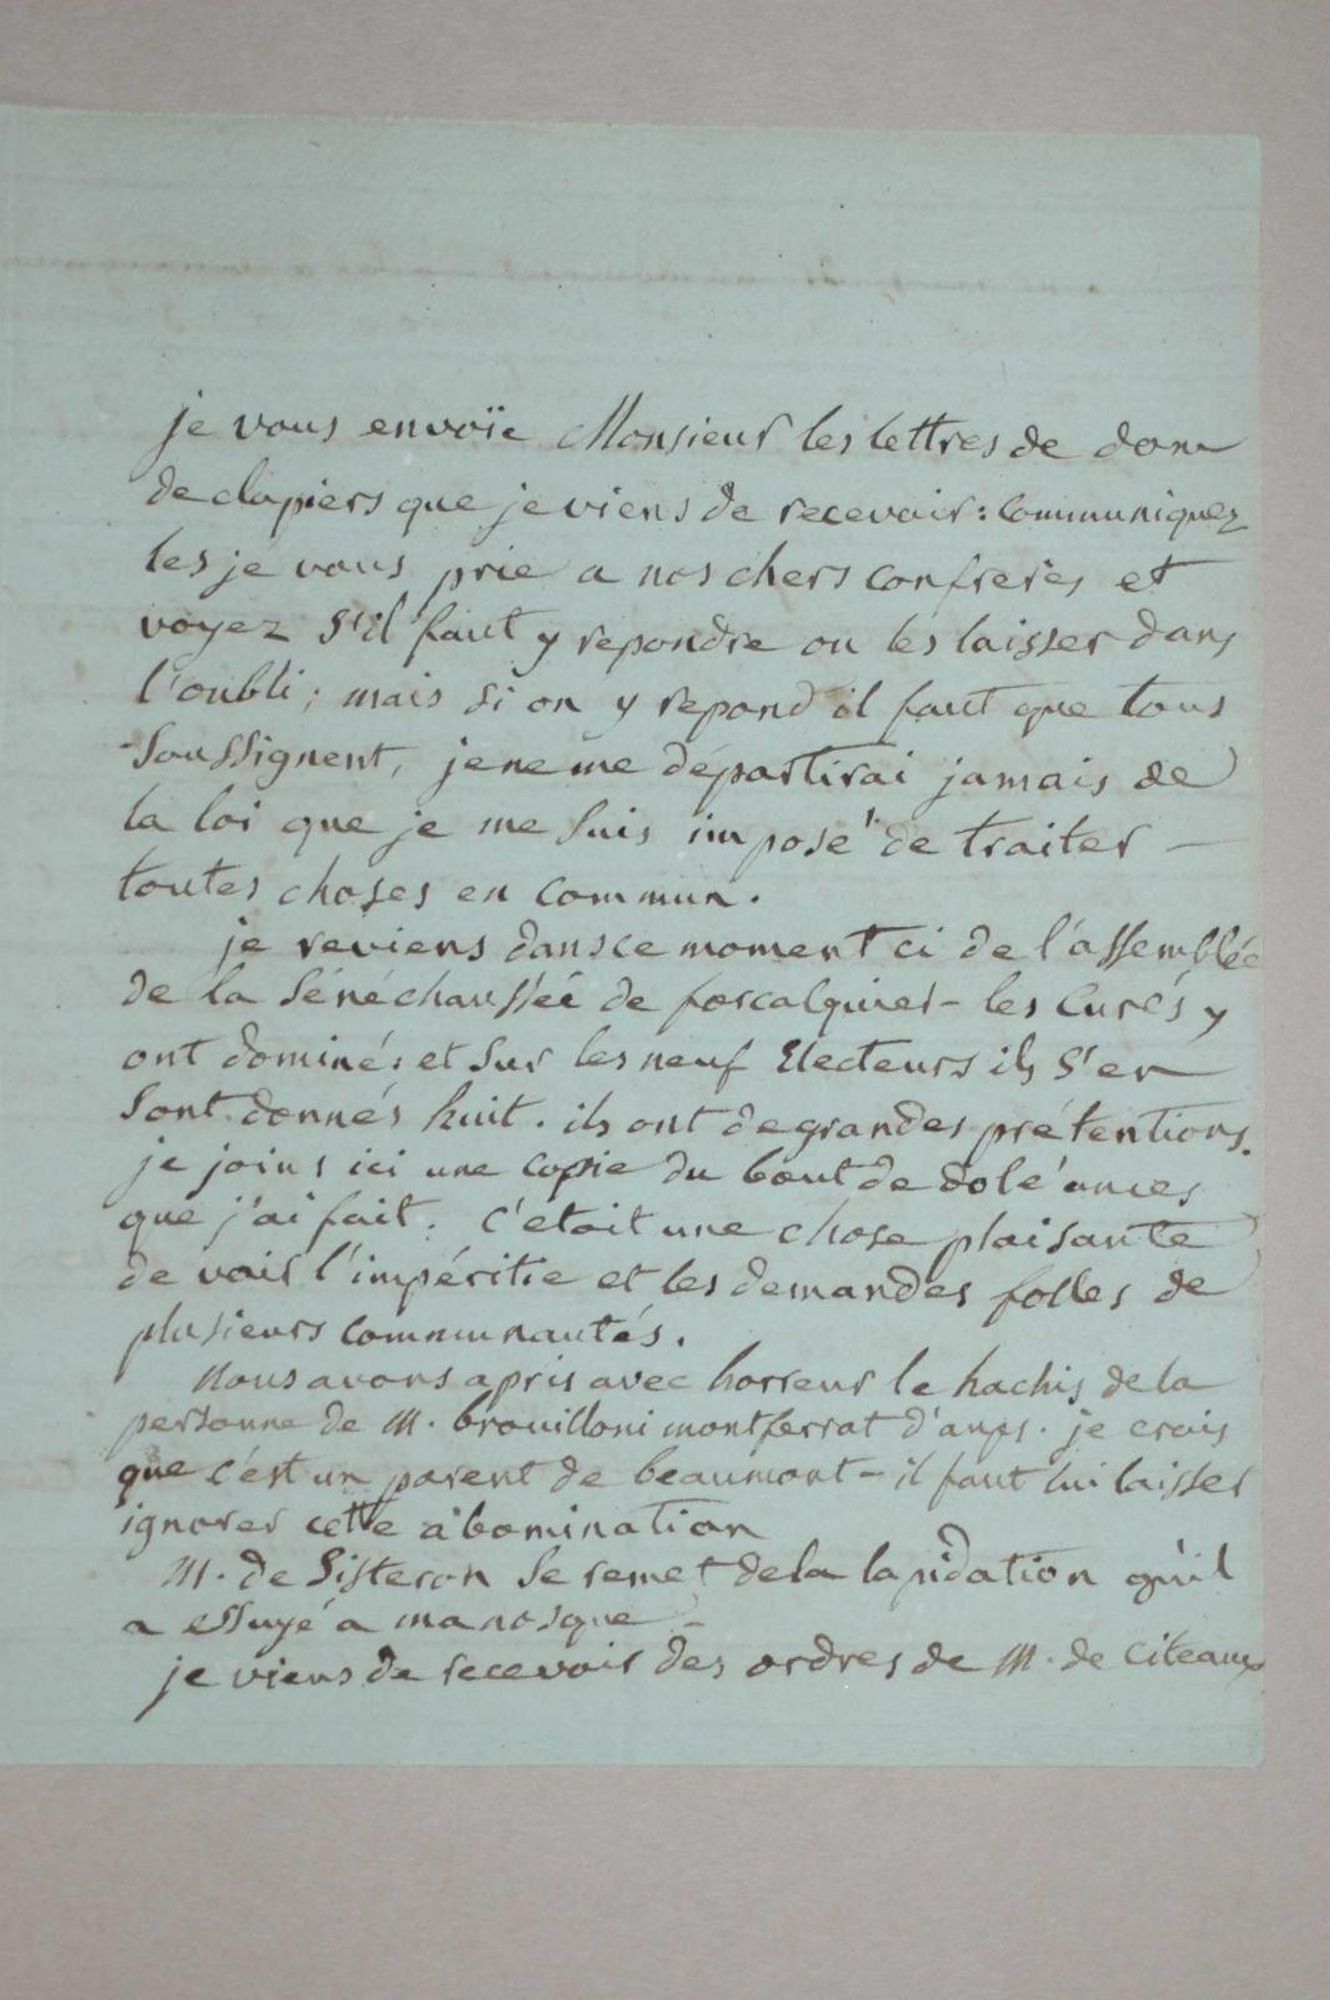 je vous envoïe Monsieur les lettres de dom
de clapiers que je viens de recevoir : communiquez
les je vous prie a nos chers confreres et
voyez s'il faut y repondre ou les laisser dans
l'oubli ; mais si on y repond il faut que tous
soussignent, je ne me départirai jamais de
la loi que je me suis imposé de traiter —
toutes choses en commun.
je reviens dans ce moment ci de l'assemblée
de la sénéchaussée de forcalquier - les curés y
ont dominés et sur les neuf Electeurs ils s'en
sont donnés huit. ils ont de grandes prétentions.
je joins ici une copie du bout de doléances
que j'ai fait. c'etoit une chose plaisante
de voir l'impéritie et les demandes folles de
plusieurs communautés.
nous avons apris avec horreur le hachis de la
personne de M. brouilloni montferrat d'aups. je crois
que c'est un parent de beaumont - il faut lui laisser
ignorer cette abomination
M. de Sisteron se remet de la lapidation qu'il
a essuyé a manosque -
je viens de recevoir des ordres de M. de citeaux